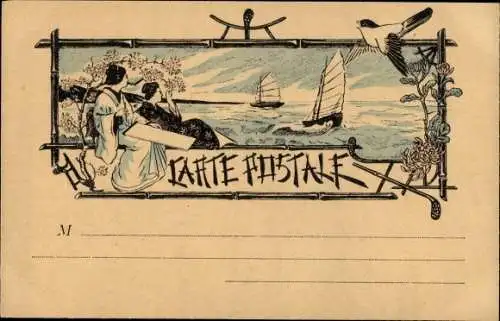 CARTE POSTALE
M